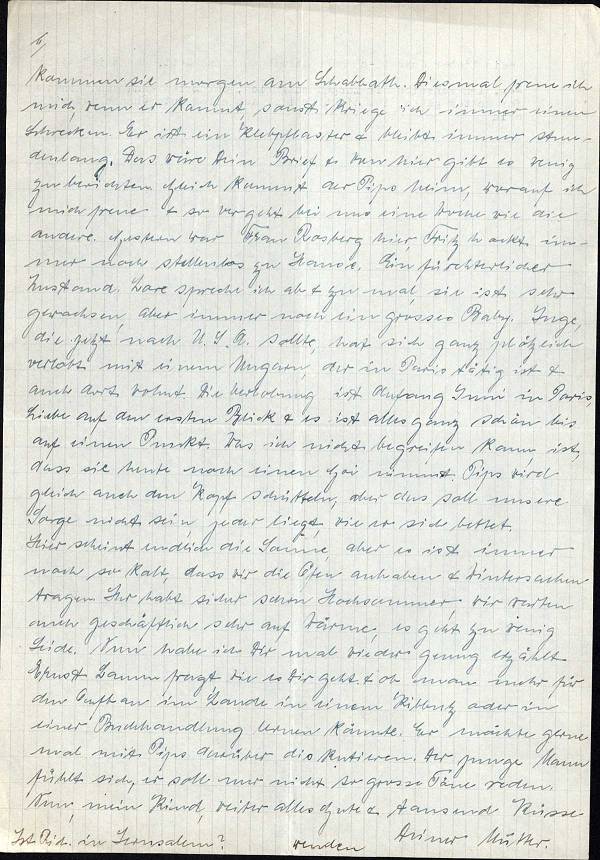 6,
kommen sie morgen am Schabbath. Diesmal freue ich
mich, wenn er kommt, sonst kriege ich immer einen
Schrecken. Er ist ein Klebpflaster & bleibt immer stun-
denlang. Das wäre Dein Brief & von hier gibt es wenig
zu berichten. Gleich kommt der Pips heim, worauf ich
mich freue & so vergeht bei uns eine Woche wie die
andere. Gestern war Frau Rosberg hier, Fritz hockt im-
mer noch stellenlos zu Hause. Ein fürchterlicher
Zustand. Lore spreche ich ab & zu mal, sie ist sehr
gewachsen, aber immer noch ein grosses Baby. Inge,
die jetzt nach U.S.A. sollte, hat sich ganz plötzlich
verlobt mit einem Ungarn, der in Paris tätig ist &
auch dort wohnt. Die Verlobung ist Anfang Juni in Paris,
Liebe auf den ersten Blick & es ist alles ganz schön bis
auf einen Punkt. Was ich nicht begreifen kann, ist,
dass sie heute noch einen Goi nimmt. Pips wird
gleich auch den Kopf schütteln, aber das soll unsere
Sorge nicht sein, jeder liegt, wie er sich bettet.
Hier scheint endlich die Sonne, aber es ist immer
noch so kalt, dass wir die Öfen anhaben & Wintersachen
tragen. Ihr habt sicher schon Hochsommer, wir warten
auch geschäftlich sehr auf Wärme, es geht zu wenig
Seide. Nun habe ich Dir mal wieder genug erzählt.
Ernst fragt wie es Dir geht & ob man mehr für
den im Lande in einem Kibbutz oder in
einer Buchhandlung lernen könnte. Er möchte gerne
mal mit Pips darüber diskutieren. Der junge Mann
fühlt sich, er soll nur nicht so grosse Töne reden.
Nun, mein Kind, weiter alles Gute & tausend Küsse
Deiner Mutter.
Ist in Jerusalem? wenden